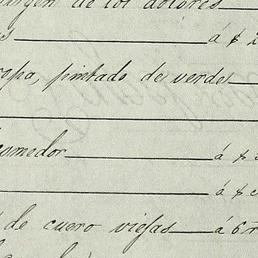 de los dolores
á $
ropa, pintado de verde
comedor á $
á $
de cuero viejas á 6 r